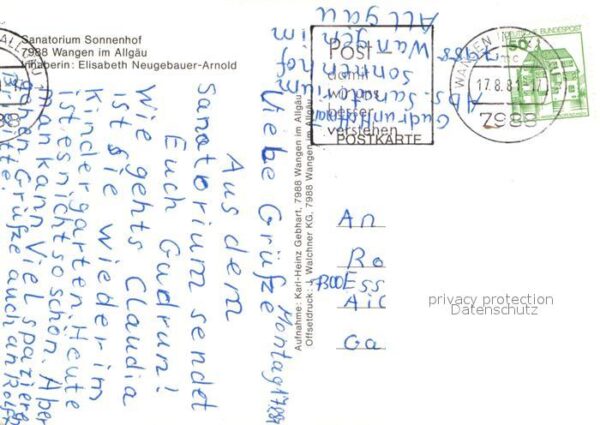 Sanatorium Sonnenhof
7988 Wangen im Allgäu
Inhaberin: Elisabeth Neugebauer-Arnold
Montag 17/8/81
Liebe Grüße
Aus dem
Sanatorium sendet
Euch Gudrun!
Wie gehts Claudia
ist sie wieder im
Kindergarten. Heute
ist es nicht so schön. Aber
man kann viel spazieren
gehen Grüße auch an Rolf
Brigitte.
Aufnahme: Karl-Heinz Gebhart, 7988 Wangen im Allgäu
Offsetdruck: F. Walchner KG, 7988 Wangen im Allgäu
Abs. Sanatorium
Sonnenhof
7988 Wangen
Allgäu
Post
damit
wir uns
besser
verstehen
POSTKARTE
WANGEN
17.8.81-17
7988
DEUTSCHE BUNDESPOST
50
An
Ro
7300 Ess
Aic
Ga
privacy protection
Datenschutz